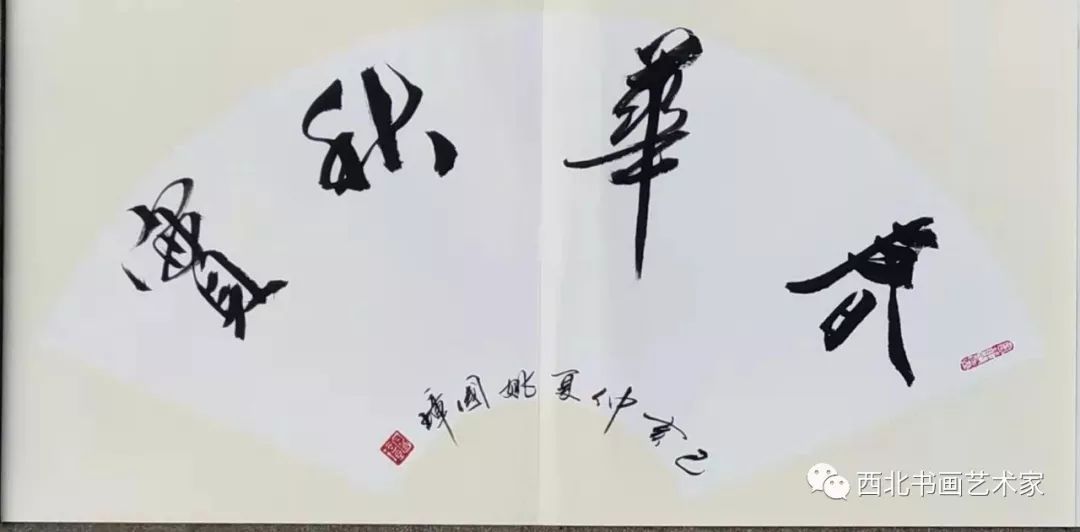 春華秋實
己亥仲夏姚國瑋
西北书画艺术家